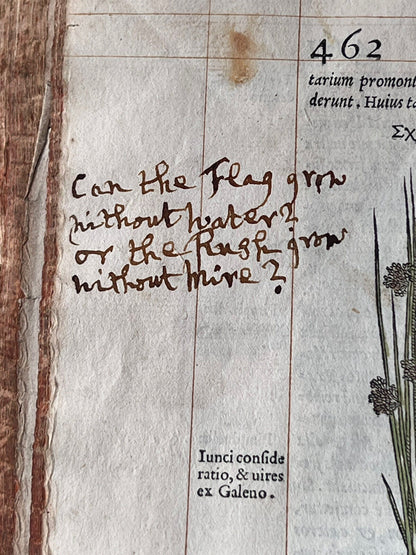 462
tarium promont
derunt. Huius ta
ΣΧ
Can the Flag grow
without water?
or the Rush grow
without Mire?
Iunci conſide
ratio, & uires
ex Galeno.